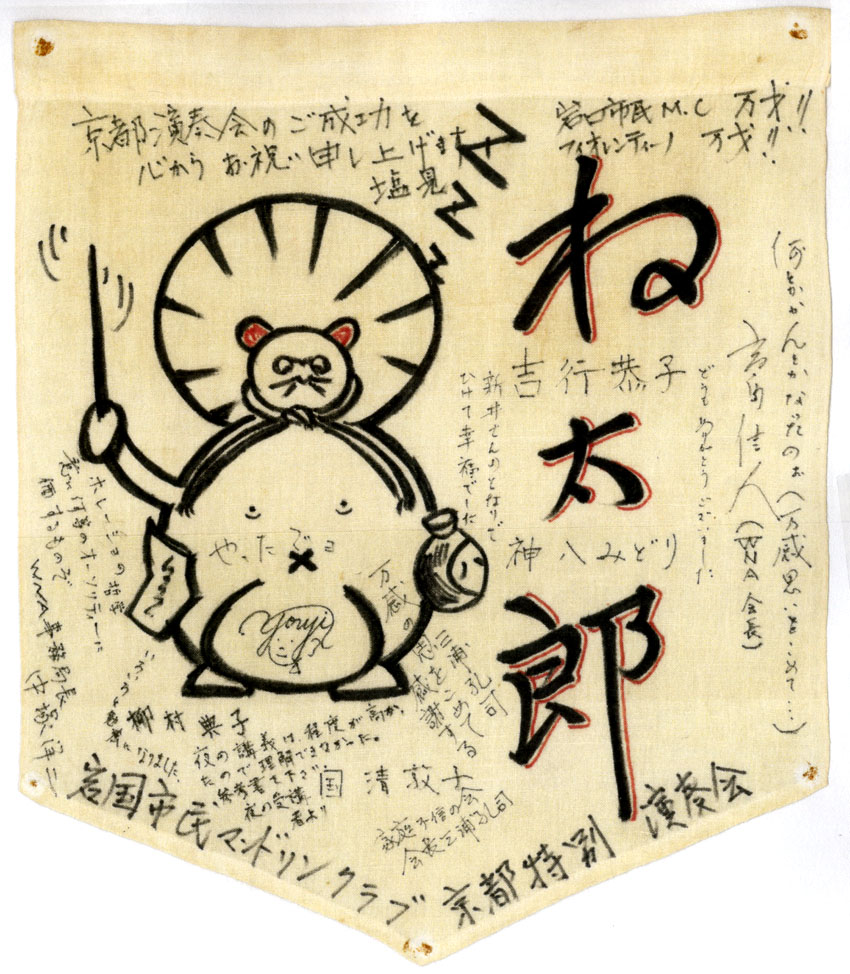 京都演奏会のご成功を
心からお祝い申し上げます
塩見
Z Z Z z
岩国市民M.C 万才!!
フィオレンティーノ 万才!!
ね太郎
何とかかんとかなったのお(万感思いをこめて…)
(WNA会長)
どうもありがとうございました
吉行恭子
神八みどり
新井さんのとなりで
ひけて幸福でした
やったでョ
Youji
万感の思をこめて
感謝する
三浦礼司
ホレーショの哲学
価するものぞ
WNA事務局長
柳村典子
いろいろと参考になりました。
夜の講義は程度が高か
ったので理解できなかった。
参考書て下さい
夜の受講者より
国清敦士
家庭不信の会
会長三浦礼司
岩国市民マンドリンクラブ 京都特別演奏会